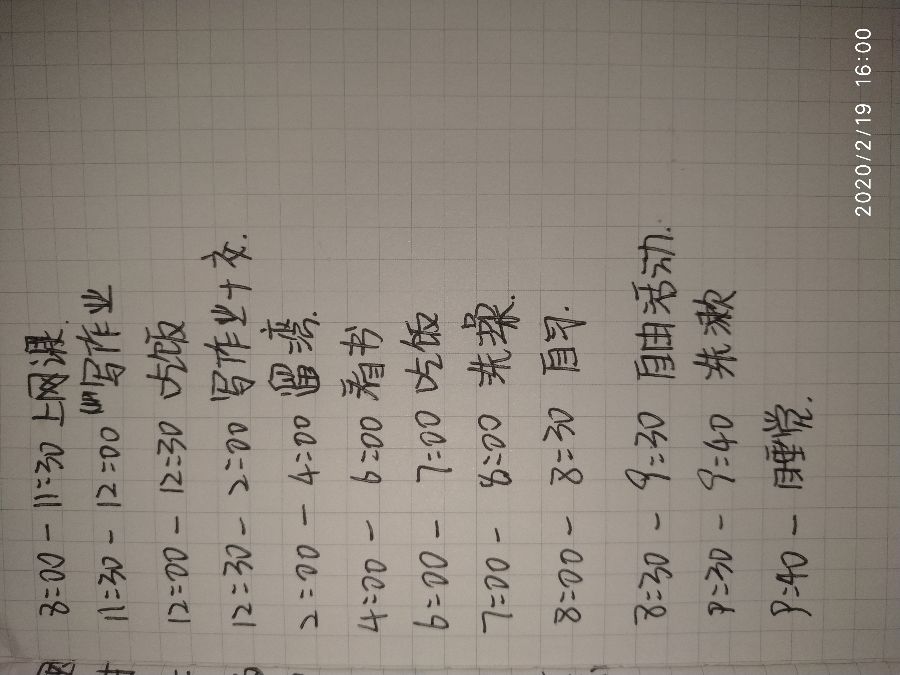 8:00 - 11:30 上网课.
11:30 - 12:00 写作业
12:00 - 12:30 吃饭
12:30 - 2:00 写作业+交.
2:00 - 4:00 遛湾.
4:00 - 6:00 看书
6:00 - 7:00 吃饭
7:00 - 8:00 洗澡.
8:00 - 8:30 自习.
8:30 - 9:30 自由活动.
9:30 - 9:40 洗漱
9:40 - 睡觉.
2020/2/19 16:00